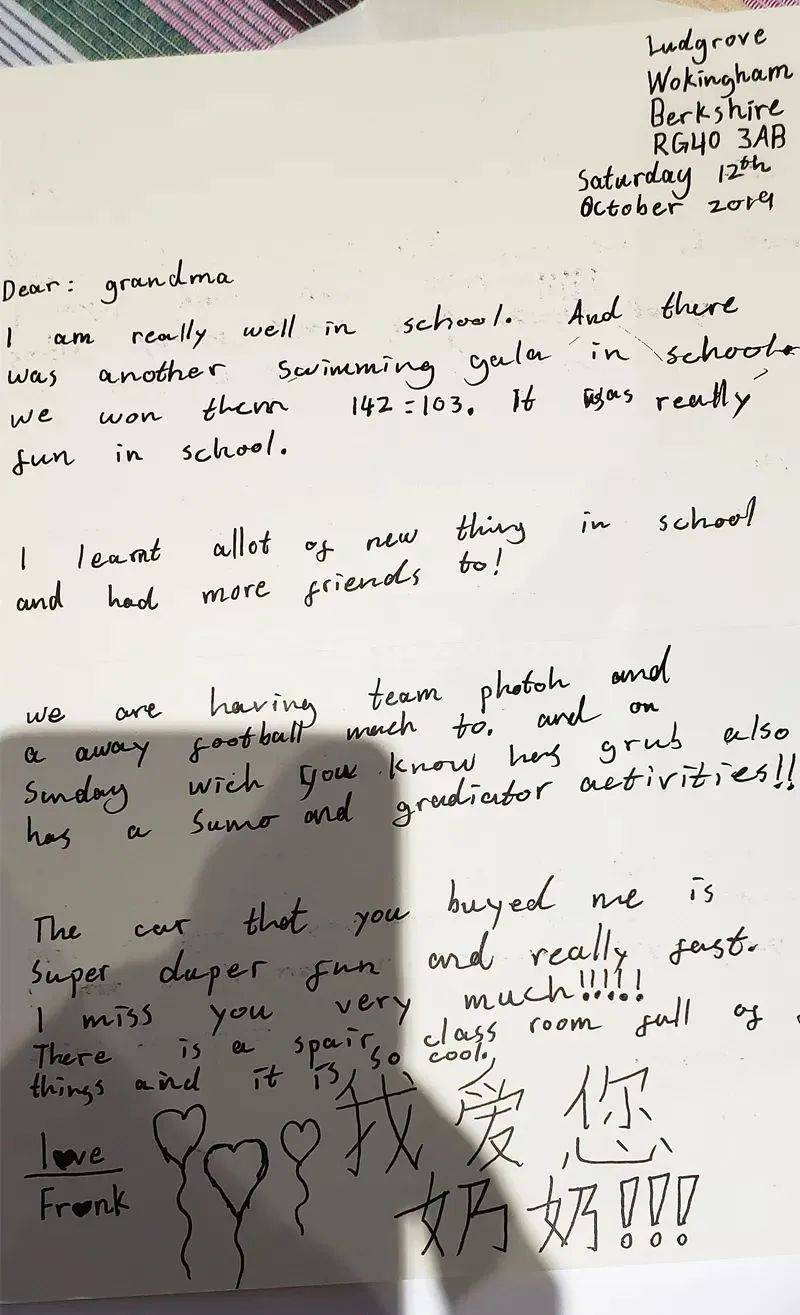 Ludgrove
Wokingham
Berkshire
RG40 3AB
Saturday 12th
October 2019
Dear: grandma
I am really well in school. And there
was another swimming gala in school
we won them 142=103. It was really
fun in school.
I learnt allot of new thing in school
and had more friends to!
we are having team photoh and
a away football mach to. and on
Sunday wich you know has grub also
has a sumo and gradiator activities!!
The car that you buyed me is
super duper fun and really fast.
I miss you very much!!!!!
There is a spair class room full of
things and it is so cool.
love
Frank
我爱您
奶奶!!!